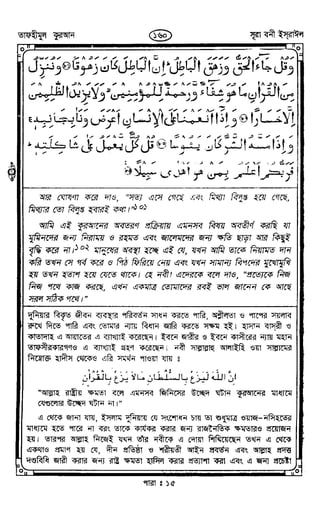 তাফহীমুল কুরআন
১৬০
সূরা বনী ইসরাঈল
وَقُلْ جَآءَ الْحَقُّ وَزَهَقَ الْبَاطِلُ ۚ اِنَّ الْبَاطِلَ كَانَ زَهُوْقًا ۝ وَنُنَزِّلُ
مِنَ الْقُرْاٰنِ مَا هُوَ شِفَآءٌ وَّرَحْمَةٌ لِّلْمُؤْمِنِيْنَ ۙ وَلَا يَزِيْدُ الظّٰلِمِيْنَ
اِلَّا خَسَارًا ۝ وَاِذَآ اَنْعَمْنَا عَلَى الْاِنْسَانِ اَعْرَضَ وَنَاٰ بِجَانِبِهٖ ۚ
وَاِذَا مَسَّهُ الشَّرُّ كَانَ يَـُٔوْسًا ۝ قُلْ كُلٌّ يَّعْمَلُ عَلٰى شَاكِلَتِهٖ ؕ
فَرَبُّكُمْ اَعْلَمُ بِمَنْ هُوَ اَهْدٰى سَبِيْلًا ۝
আর ঘোষণা করে দাও, "সত্য এসে গেছে এবং মিথ্যা বিলুপ্ত হয়ে গেছে,
মিথ্যার তো বিলুপ্ত হবারই কথা।"১০১
আমি এই কুরআনের অবতরণ প্রক্রিয়ায় এমনসব বিষয় অবতীর্ণ করছি যা
মুমিনদের জন্য নিরাময় ও রহমত এবং জালেমদের জন্য ক্ষতি ছাড়া আর কিছুই
বৃদ্ধি করে না।১০২ মানুষের অবস্থা হচ্ছে এই যে, যখন আমি তাকে নিয়ামত দান
করি তখন সে গর্ব করে ও পিঠ ফিরিয়ে নেয় এবং যখন সামান্য বিপদের মুখোমুখি
হয় তখন হতাশ হয়ে যেতে থাকে। হে নবী! এদেরকে বলে দাও, "প্রত্যেকে নিজ
নিজ পথে কাজ করছে, এখন একমাত্র তোমাদের রবই ভাল জানেন কে আছে
সরল সঠিক পথে।"
দুনিয়ার বিকৃত জীবন ব্যবস্থায় পরিবর্তন সাধন করতে পারি, অশ্লীলতা ও পাপের সয়লাব
রুখে দিতে পারি এবং তোমার ন্যায় বিধান জারি করতে সক্ষম হই। হাসান বাসরী ও
কাতাদাহ এ আয়াতের এ ব্যাখ্যাই করেছেন। ইবনে জারীর ও ইবনে কাসীরের ন্যায় মহান
তাফসীরকারগণও এ ব্যাখ্যাই গ্রহণ করেছেন। নবী সাল্লাল্লাহু আলাইহি ওয়া সাল্লামের
নিম্নোক্ত হাদীস থেকেও এরি সমর্থন পাওয়া যায় :
اِنَّ اللهَ لَيَزَعُ بِالسُّلْطَانِ مَالَا يَزَعُ بِالْقُرْاٰنِ
"আল্লাহ রাষ্ট্রীয় ক্ষমতা বলে এমনসব জিনিসের উচ্ছেদ ঘটান কুরআনের মাধ্যমে
যেগুলোর উচ্ছেদ ঘটান না।"
এ থেকে জানা যায়, ইসলাম দুনিয়ায় যে সংশোধন চায় তা শুধুমাত্র ওয়াজ-নসিহতের
মাধ্যমে হতে পারে না বরং তাকে কার্যকর করার জন্য রাজনৈতিক ক্ষমতারও প্রয়োজন
হয়। তারপর আল্লাহ নিজেই যখন তাঁর নবীকে এ দোয়া শিখিয়েছেন তখন এ থেকে
একথাও প্রমাণ হয় যে, দীন প্রতিষ্ঠা ও শরীয়তী আইন প্রবর্তন এবং আল্লাহ প্রদত্ত
দণ্ডবিধি জারী করার জন্য রাষ্ট্র ক্ষমতা হাসিল করার প্রত্যাশা করা এবং এ জন্য প্রচেষ্টা
পারা : ১৫